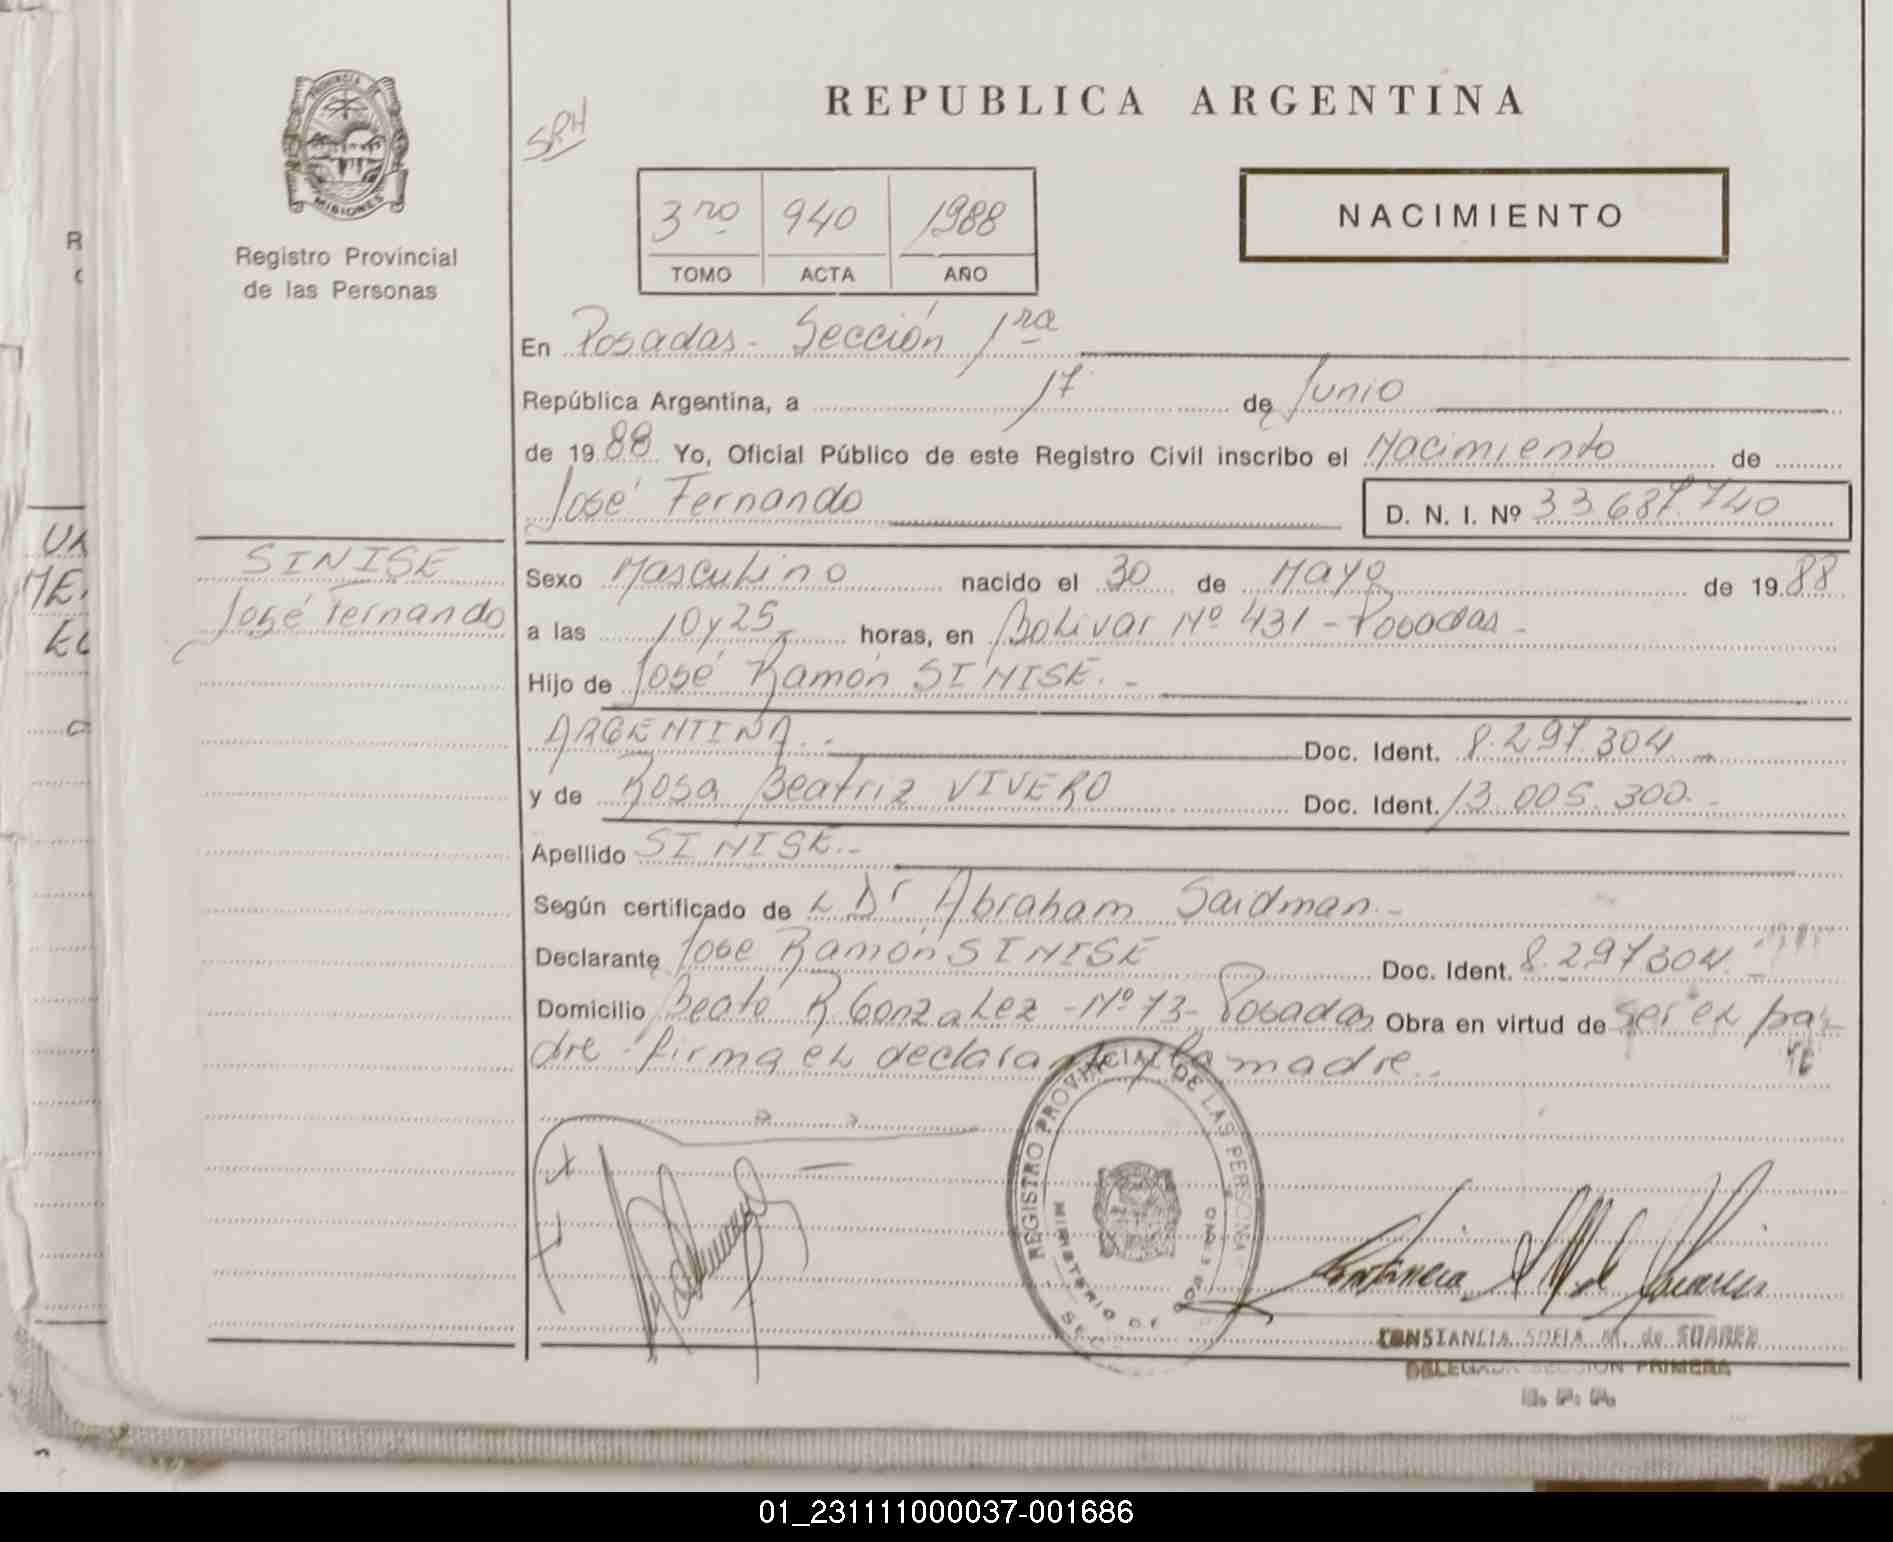 REPUBLICA ARGENTINA
SRH
PROVINCIA DE
MISIONES
Registro Provincial
de las Personas
3ro 940 1988
TOMO ACTA AÑO
NACIMIENTO
En Posadas - Sección 1ra
República Argentina, a 17 de Junio
de 1988 Yo, Oficial Público de este Registro Civil inscribo el Nacimiento de
José Fernando
D. N. I. Nº 33.687.740
SINISE
José Fernando
Sexo Masculino nacido el 30 de Mayo de 1988
a las 10 y 25 horas, en Bolivar Nº 431 - Posadas -
Hijo de José Ramón SINISE. -
ARGENTINA. - Doc. Ident. 8.297.304 -
y de Rosa Beatriz VIVERO Doc. Ident. 13.005.300. -
Apellido SINISE. -
Según certificado de L Dr Abraham Saidman. -
Declarante José Ramón SINISE Doc. Ident. 8.297304. -
Domicilio Beato R Gonzalez - Nº 73 - Posadas Obra en virtud de ser el pa-
dre - firma el declarante y la madre. .
REGISTRO PROVINCIAL DE LAS PERSONAS
MINISTERIO DE GOBIERNO
CONSTANCIA SOFIA M. de SUAREZ
DELEGADA SECCION PRIMERA
R. P. P.
01_231111000037-001686